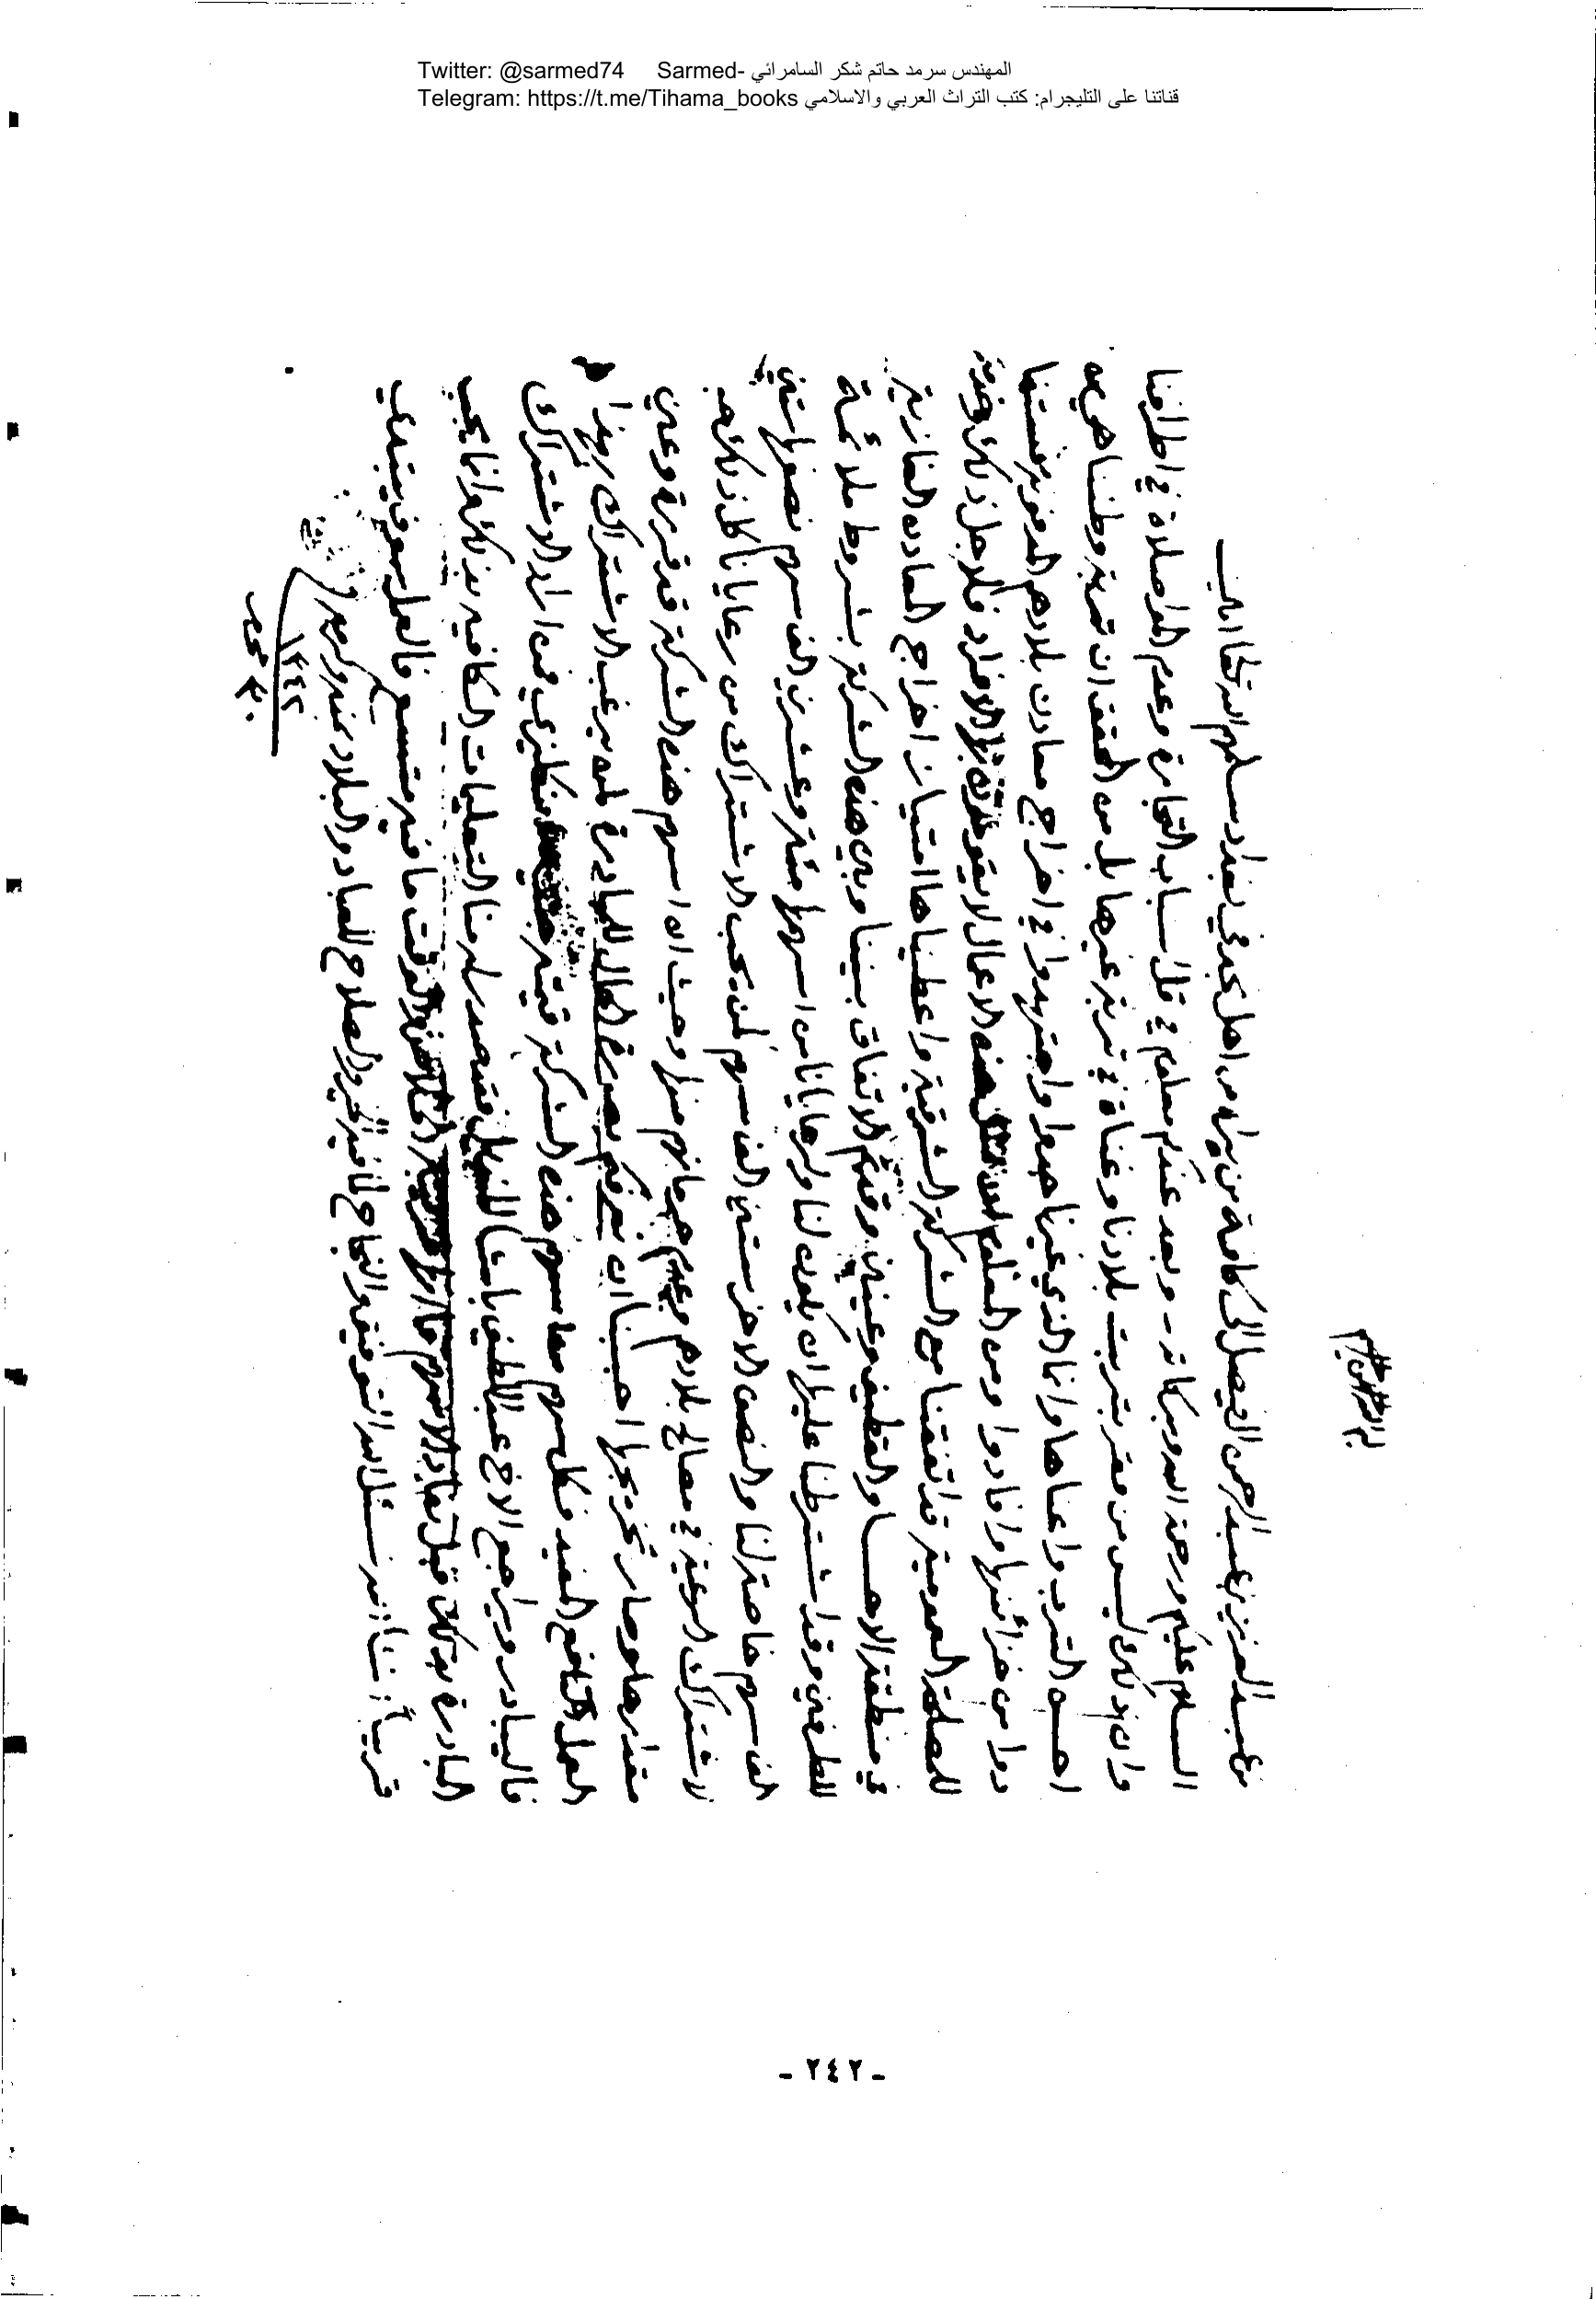 Twitter: @sarmed74 Sarmed- المهندس سرمد حاتم شكر السامرائي
Telegram: https://t.me/Tihama_books قناتنا على التليجرام: كتب التراث العربي والاسلامي
بسم الله الرحمن الرحيم
من عبد العزيز بن عبد الرحمن الفيصل الى كافة من يراه من اهل نجد في بغداد سلمهم الله تعالى امين
السلام عليكم ورحمة الله وبركاته - وبعد عندكم معلوم في قل اسباب التجارة وعدم المواصلاة في اطرافنا
وان ذلك ليس من فقر تربت بلادنا وغناة في تربة غيرها بل من المحقق ان تربة وطننا هي من
احسن الترب واغناها وانما الذي غيرنا جمعوا واجتهدوا في اخراج معادن بلادهم المدفونة فاستفا
دوا من خزائنها وافادوا ومن المعلوم ان هذه الاعمال لا يقو بها الافراد فلاجل ذلك وخدمة
للمصلحة العمومية قد اتفقنا مع الشركة الشرقية واعطيناها امتياز اخراج المعادن الغازية
في منطقة الاحساء والقطيف وعينين وقد تم الاتفاق بيننا وبين هذه الشركة بشروط ملائمة
للطرفين وقد اشترطنا عليها ان يكون لنا ولرعايانا من اسهمها مئة وعشرين الف سهم نصفها ستين
الف سهم خاصة لنا والنصف الاخر ستين الف سهم لمن يحب الاشتراك من رعايانا كل ذلك
لاشتراك الرعية في مصالح بلادهم وعدم حرمانهم منها وحيث ان اسهم هذه الشركة قد قررة وعين
مقدارها وصار تحريرها احببنا ان نعرفكم بصورة الحال للمبادرة لمن يرغب الاشتراك بهذا
العمل النافع المفيد فكل سهم من اسهم هذه الشركة قيمته انكليزي فمن اراد الاشتراك
فاليبادر ويراجع الاخ عبد اللطيف باشا المنديل فقد صدر له منا التعليمات الكافية بذلك وانما يجب
المبادرة بذلك قبل نفاد الاسهم الوقت ما فيه متسع فالعمل سوف يبتدي
قريباً ان شاء الله نسئل الله التوفيق والنجاح لما فيه الخير والصلاح للعباد والبلاد بمنه وكرمه
١٣٤٢
- ٢٤٢ -